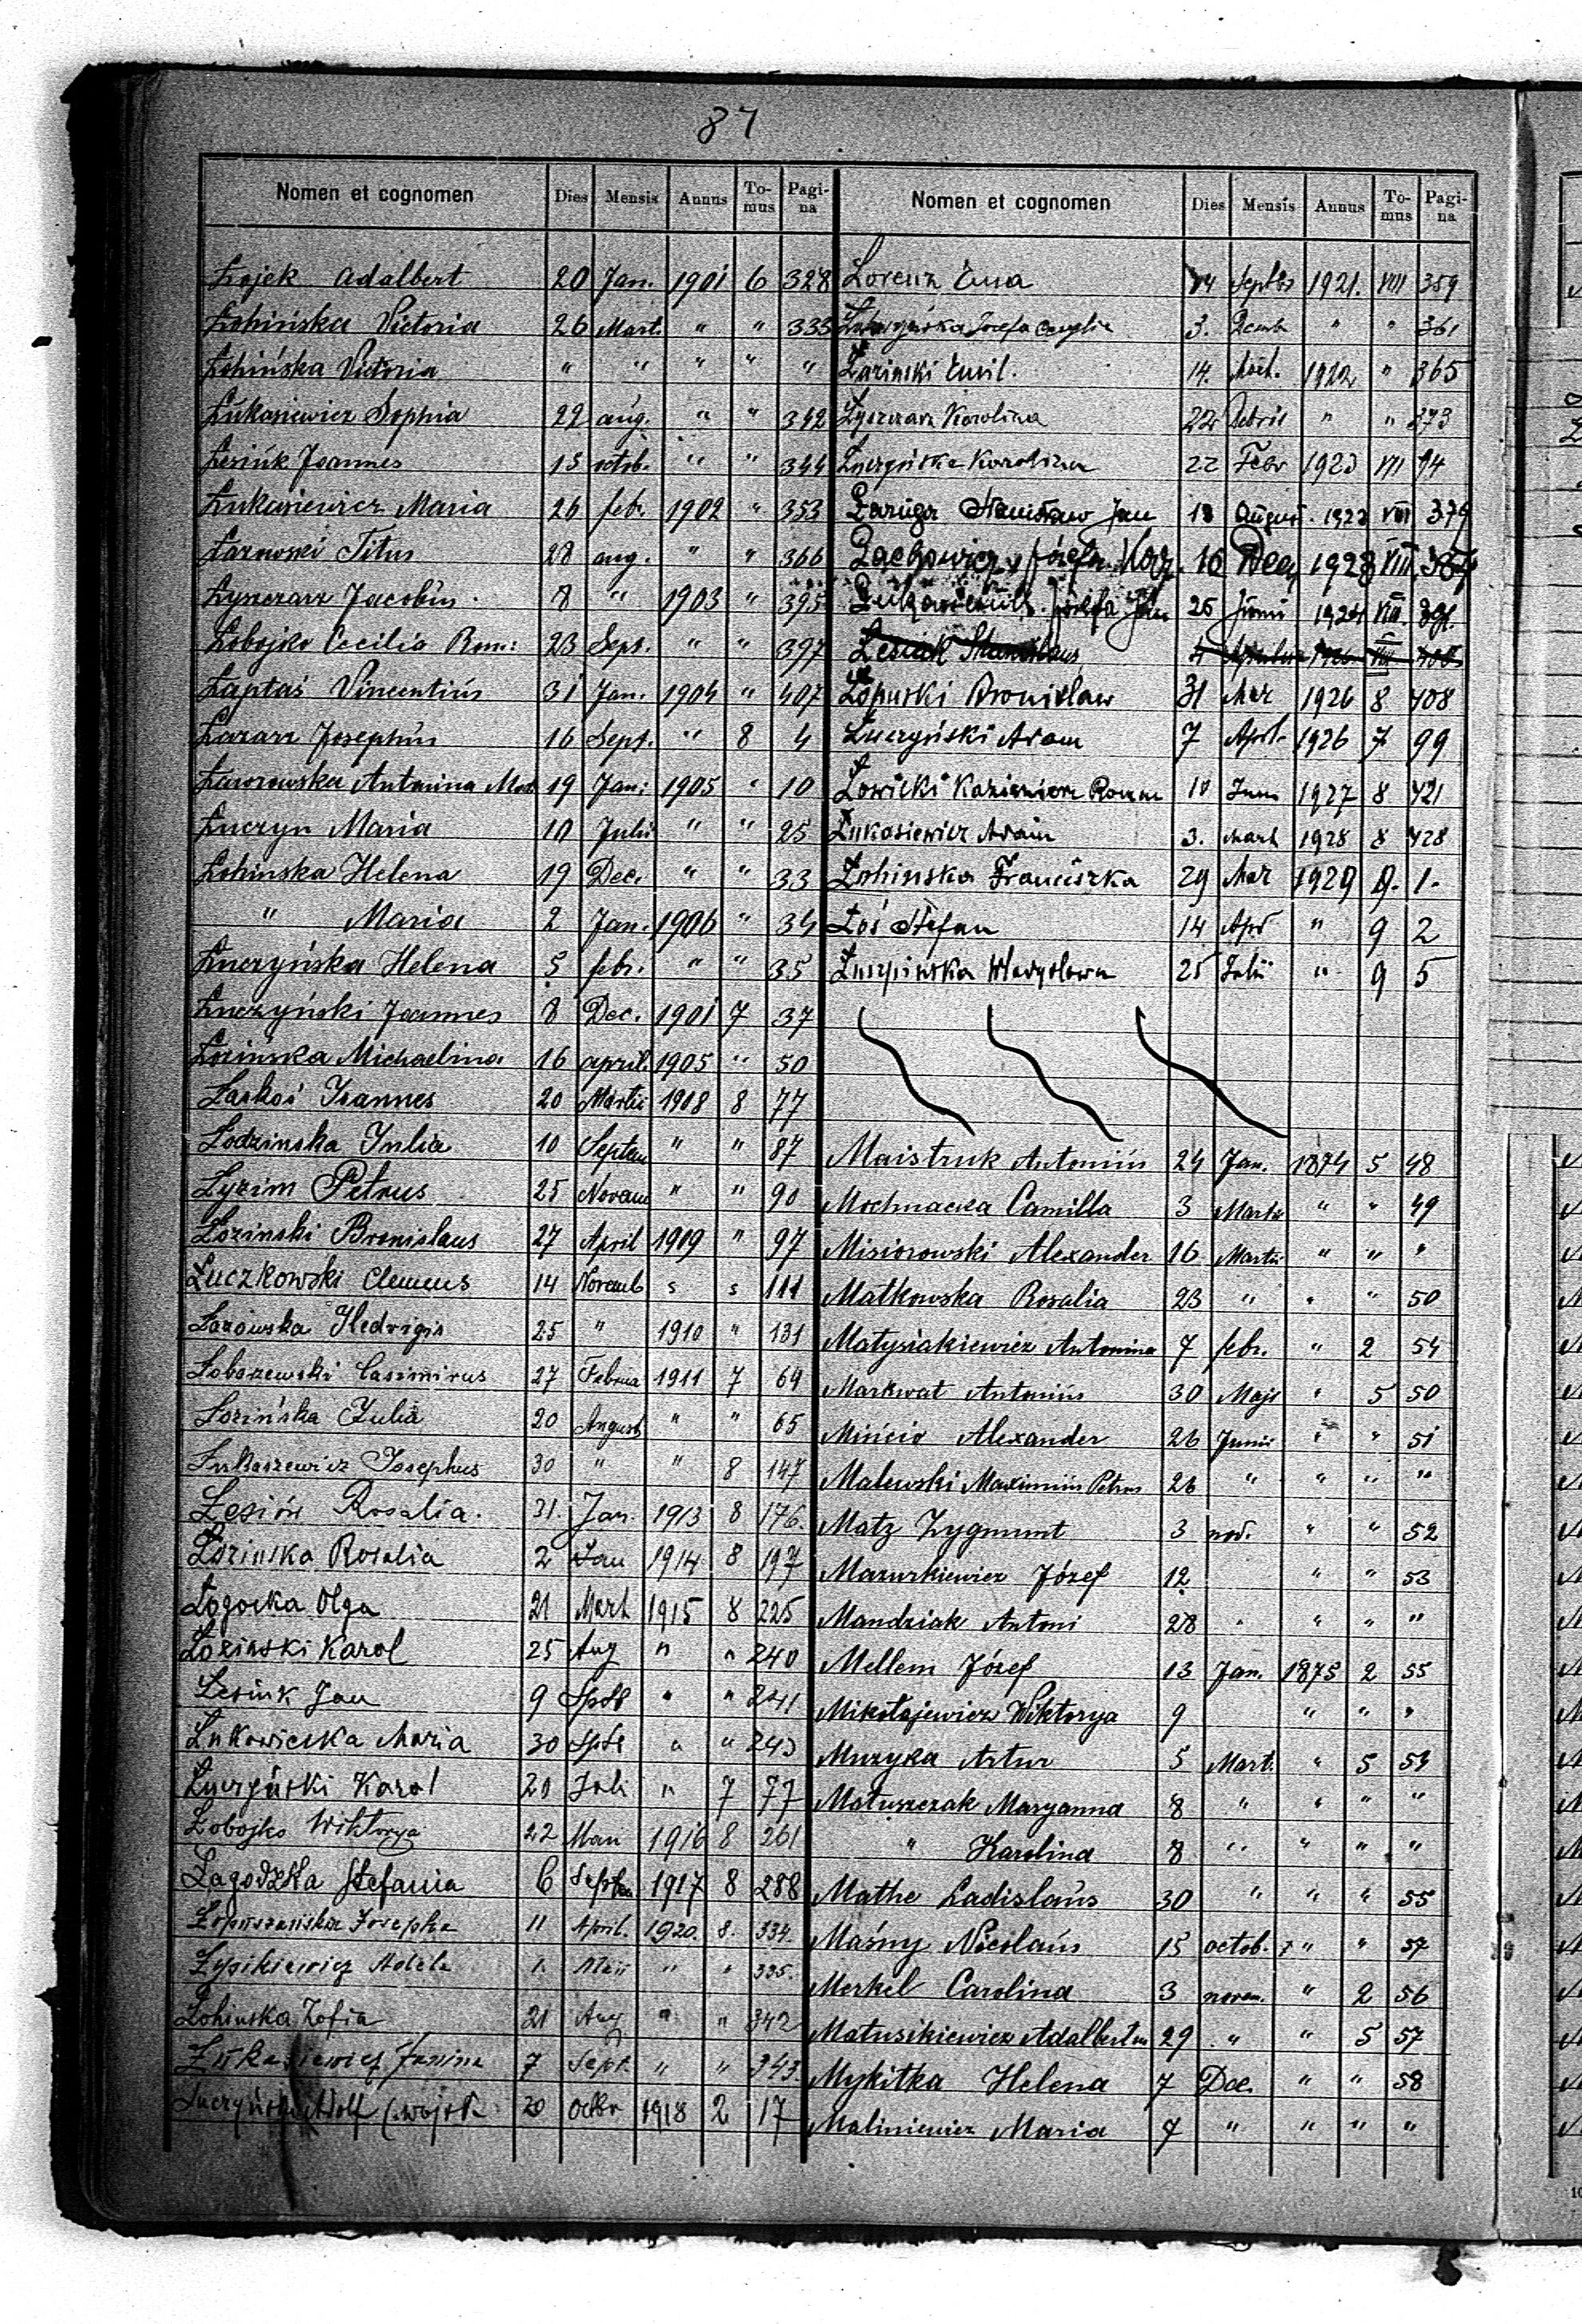 87
Nomen et cognomen Dies Mensis Annus Tomus Pagina
Łojek Adalbert 20 Jan. 1901 6 328
Łohińska Victoria 26 Mart. " " 333
Łohińska Victoria " " " " "
Łukasiewicz Sophia 22 aug. " " 342
Łesiuk Joannes 15 octob. " " 344
Łukasiewicz Maria 26 febr. 1902 " 353
Łazowski Titus 28 aug. " " 366
Łyszczarz Jacobus 8 " 1903 " 395
Łobojko Cecilia Rom: 23 Sept. " " 397
Łaptaś Vincentius 31 Jan. 1904 " 407
Łazarz Josephus 16 Sept. " 8 4
Ławrowska Antonina 19 Jan: 1905 " 10
Łuczyn Maria 10 Julii " " 25
Łohinska Helena 19 Dec. " " 33
" Maria 2 Jan. 1906 " 34
Łuczyńska Helena 5 febr. " " 35
Łuczyński Joannes 8 Dec. 1901 7 37
Łozińska Michaelina 16 april. 1905 " 50
Łaskoś Joannes 20 Martii 1908 8 77
Łodzinska Julia 10 Septem " " 87
Łyzim Petrus 25 Novem " " 90
Łozinski Bronislaus 27 April 1909 " 97
Łuczkowski Clemens 14 Novemb s s 111
Łazowska Hedvigis 25 " 1910 " 131
Łobozewski Casimirus 27 Februa 1911 7 64
Łozińska Julia 20 August " " 65
Łukaszewicz Josephus 30 " " 8 147
Łesiów Rosalia. 31. Jan. 1913 8 176.
Łozinska Rosalia 2 Jan 1914 8 197
Łogocka Olga 21 Mart 1915 8 225
Łozinski Karol 25 Aug " " 240
Łesiuk Jan 9 Sptb " " 241
Łukowiecka Maria 30 Spt " " 243
Łuczyński Karol 20 Juli " 7 77
Łobojko Wiktorya 22 Mai 1916 8 261
Łagodzka Stefania 6 Septem 1917 8 288
Łopuszańska Josepha 11 April. 1920. 8. 334.
Łysikiewicz Adela 1. Maii " " 335.
Łohinska Zofia 21 Aug " " 342
Łukasiewicz Janina 7 Sept. " " 343.
Łuczyński Adolf (wojsk. 20 Octbr 1918 2 17
Nomen et cognomen Dies Mensis Annus Tomus Pagina
Lorenz Ewa 14 Septbr 1921. VIII 359
Józefa 3. Decemb " " 361
Łazinski Emil. 14. 1922 " 365
Łyszczarz Karolina 22 " " 373
Łuczyńska Karolina 22 Febr 1923 VII 94
Łaruga Stanisław Jan 18 August. 1923 VIII 379
Łachowicz Józefa 16 Dec 1923 VIII
25 Junii 1924 VIII.
Łesiak Stanislaus 4
Łopuski Bronisław 31 Mar 1926 8 408
Łuczyński Adam 7 April 1926 7 99
Łowicki Kazimierz Roman 10 Juni 1927 8 421
Łukasiewicz Adam 3. Mart 1928 8 428
Łohinska Franciszka 29 Mar 1929 9. 1.
Łoś Stefan 14 Apr " 9 2
Łuczyinska Władysława 25 Julii " 9 5
Maistruk Antonius 24 Jan. 1874 5 48
Mochnacka Camilla 3 Martii " " 49
Misiorowski Alexander 16 Martii " " "
Matkowska Rosalia 23 " " " 50
Matysiakiewicz Antonina 7 febr. " 2 54
Markwat Antonius 30 Maji " 5 50
Mińcio Alexander 26 Junii " " 51
Malewski Maximius Petrus 26 " " " "
Matz Zygmunt 3 nov. " " 52
Mazurkiewicz Józef 12 " " 53
Mandziak Antoni 28 " " " "
Mellem Józef 13 Jan. 1875 2 55
Mikołajewicz Wiktorya 9 " " "
Muzyka Artur 5 Mart. " 5 54
Matuszczak Maryanna 8 " " " "
" Karolina 8 " " " "
Mathe Ladislaus 30 " " " 55
Maśny Nicolaus 15 octob. " " 57
Merkel Carolina 3 novem. " 2 56
Matusikiewicz Adalbertus 29 " " 5 57
Mykitka Helena 7 Dec. " " 58
Maliniewicz Maria 7 " " " "